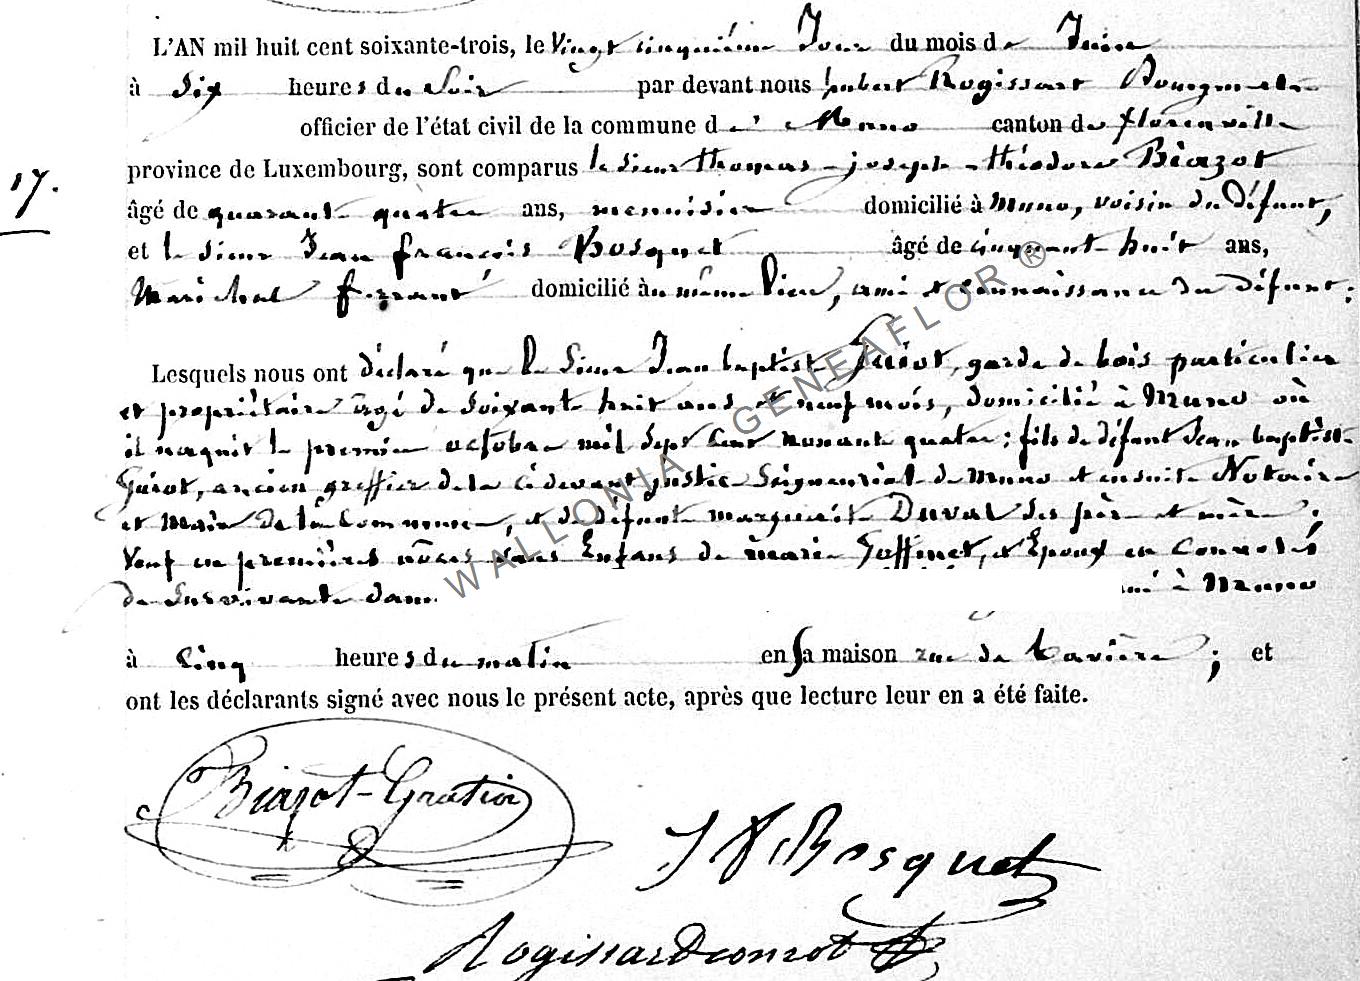 L'AN mil huit cent soixante-trois, le Vingt cinquième Jour du mois de Juin
à Six heures du Soir par devant nous hubert Rogissart Bourgmestre
officier de l'état civil de la commune de Muno canton de florenville
17.
province de Luxembourg, sont comparus le sieur thomas-joseph-théodore Biazot
âgé de quarante quatre ans, menuisier domicilié à Muno, voisin du Défunt,
et le sieur Jean françois Bosquet âgé de cinquante huit ans,
Maréchal ferrant domicilié au même lieu, ami et connaissance du défunt;
Lesquels nous ont déclaré que le Sieur Jean baptiste Guiot, garde de bois particulier
et propriétaire âgé de Soixante huit ans et neuf mois, domicilié à Muno où
il naquit le premier octobre mil Sept Cent nonante quatre; fils de défunt Jean baptiste
Guiot, ancien greffier de la ci devant justice Seigneurial de Muno et ensuite Notaire
et Maire de la Commune, et de défunte marguerite Duval Ses père et mère;
Veuf en premières nôces Sans Enfans de Marie Goffinet, et Epoux en Convolés
de Survivante dame à Muno
à Cinq heures du matin en Sa maison rue de ; et
ont les déclarants signé avec nous le présent acte, après que lecture leur en a été faite.
Biazot-Gratia
J F Bosquet
Rogissart
WALLONIA GENEAFLOR ®